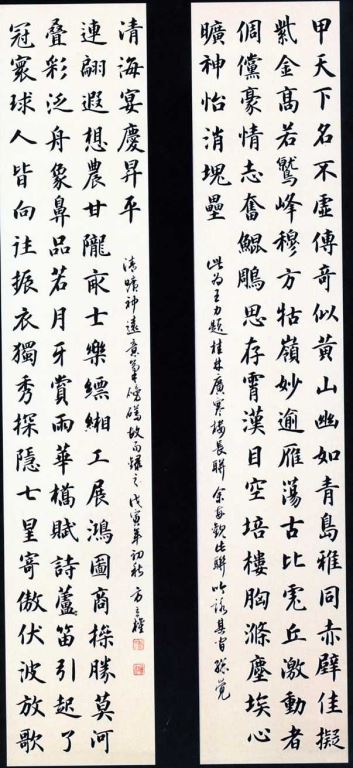 甲天下名不虛傳奇似黃山幽如青島雅同赤壁佳擬
紫金高若鷲峰穆方牯嶺妙逾雁蕩古比虎丘激動者
倜儻豪情志奮鯤鵬思存霄漢目空培樓胸滌塵埃心
曠神怡消塊壘
此為王力題桂林廣寒樓長聯余每觀此聯吟詠
冠寰球人皆向往振衣獨秀探隱七星寄傲伏波放歌
疊彩泛舟象鼻品若月牙賞雨華橋賦詩蘆笛引起了
連翩遐想農甘隴畝士樂縹緗工展鴻圖商操勝莫河
清海宴慶昇平
清曠神遠意故而錄之戊寅年初秋方